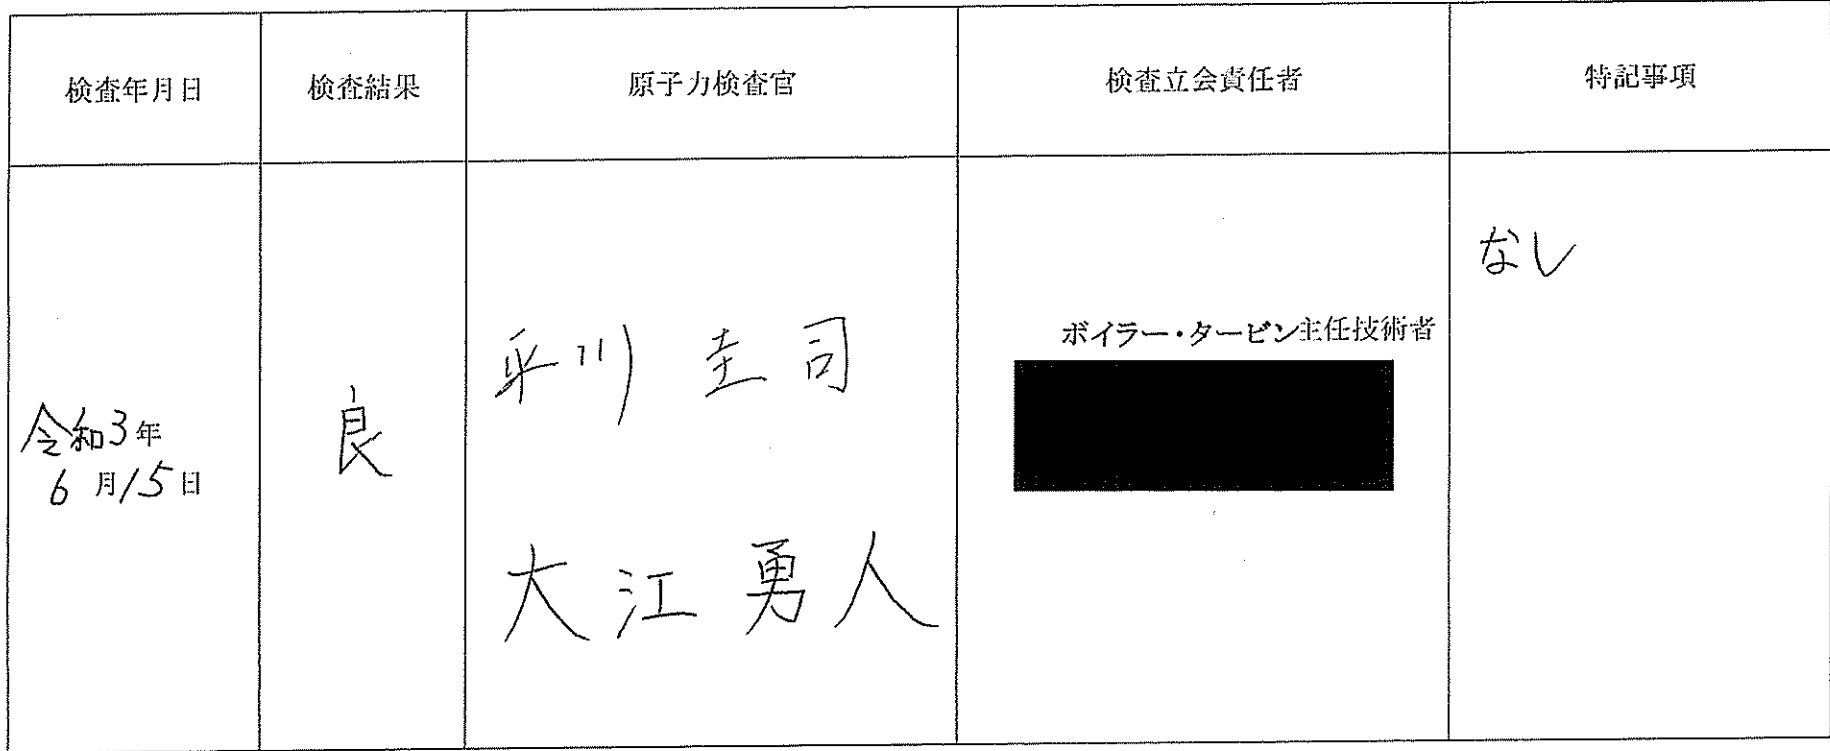 検査年月日
検査結果
原子力検査官
検査立会責任者
特記事項
令和3年
6月15日
良
平川 圭司
大江 勇人
ボイラー・タービン主任技術者
なし